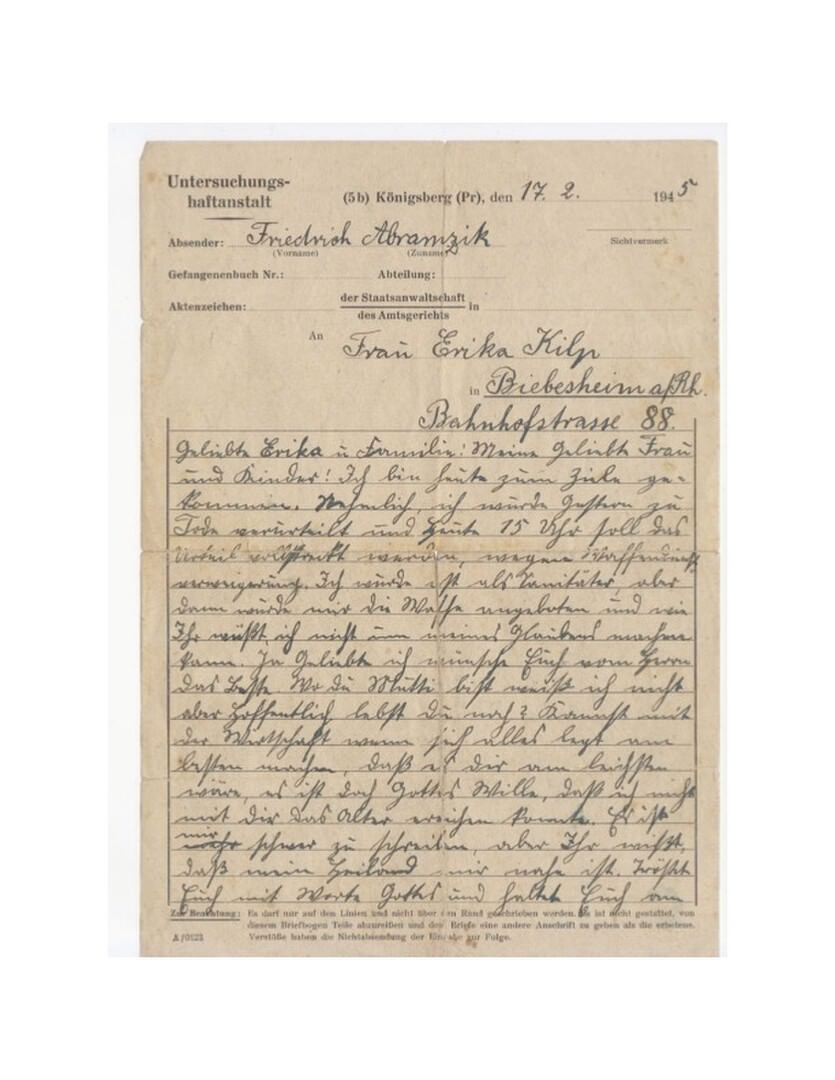 Untersuchungs-
haftanstalt
(5b) Königsberg (Pr), den 17. 2. 1945
Absender: Friedrich Abramzik
Sichtvermerk
(Vorname) (Zuname)
Gefangenenbuch Nr.: Abteilung:
Aktenzeichen: der Staatsanwaltschaft in
des Amtsgerichts
An
Frau Erika Kilp
in Biebesheim a/Rh.
Bahnhofstrasse 88.
Geliebte Erika u Familie! Meine Geliebte Frau
und Kinder! Ich bin heute zum Ziele ge-
kommen. Nehmlich, ich wurde Gestern zu
Tode verurteilt und Heute 15 Uhr soll das
Urteil vollstreckt werden, wegen Waffendienst
verweigerung. Ich wurde als Sanitäter, aber
dann wurde mir die Waffe angeboten und wie
Ihr wüßt, ich nicht um meines Glaubens machen
kann. Ja Geliebte ich wünsche Euch vom Herrn
das Beste. Wo du Mutti bist weiß ich nicht
aber Hoffentlich lebst Du noch? Kannst mit
der Wirtschaft wenn sich alles legt am
besten machen, daß es dir am leichsten
wäre, es ist doch Gottes Wille, daß ich nicht
mit dir das Alter ereichen konnte. Es ist
mir
schwer zu schreiben, aber Ihr wißt,
daß mein Heiland mir nahe ist. Tröstet
Euch mit Worte Gottes und haltet Euch am
Zur Beachtung: Es darf nur auf den Linien und nicht über den Rand geschrieben werden. Es ist nicht gestattet, von
diesem Briefbogen Teile abzureißen und der Briefe eine andere Anschrift zu geben als die erbetene.
A/0123 Verstöße haben die Nichtabsendung der Eingabe zur Folge.